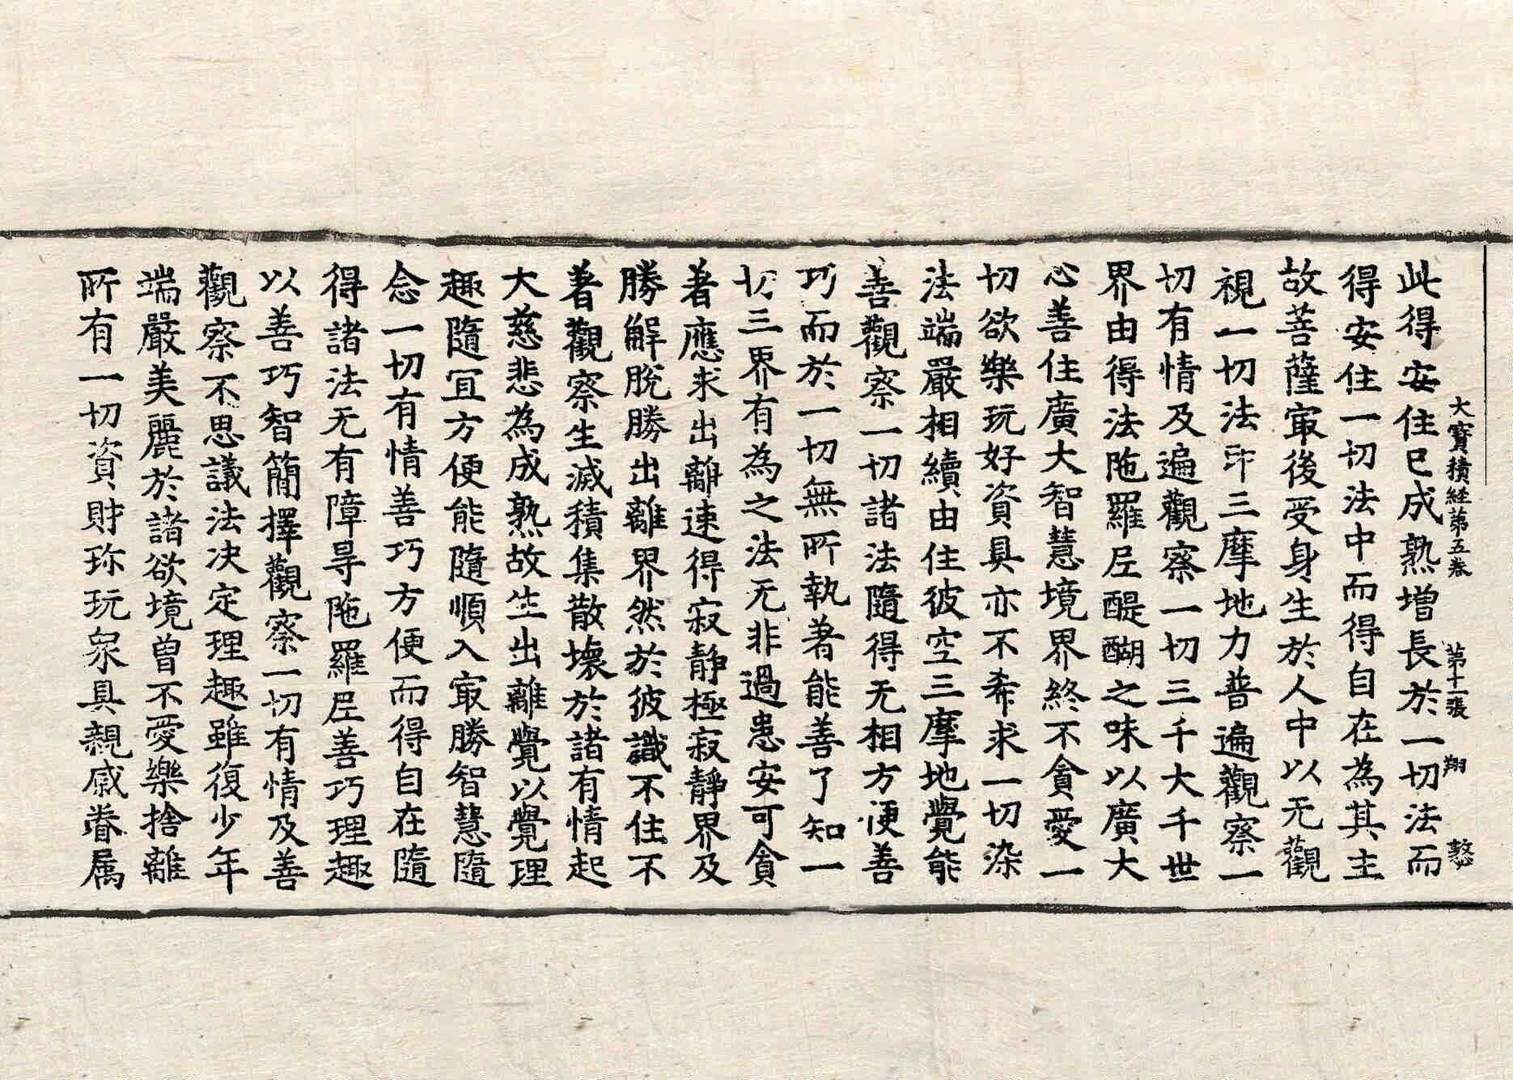 大寶積経第五卷　第十一張　翔　愸
此得安住已成熟增長於一切法而
得安住一切法中而得自在為其主
故菩薩㝡後受身生於人中以无觀
視一切法印三摩地力普遍觀察一
切有情及遍觀察一切三千大千世
界由得法陁羅𡰱醍醐之味以廣大
心善住廣大智慧境界終不貪愛一
切欲樂玩好資具亦不希求一切染
法端嚴相續由住彼空三摩地覺能
善觀察一切諸法隨得无相方便善
巧而於一切無所執著能善了知一
切三界有為之法无非過患安可貪
著應求出離速得寂靜極寂靜界及
勝解脫勝出離界然於彼識不住不
著觀察生滅積集散壞於諸有情起
大慈悲為成熟故生出離覺以覺理
趣隨冝方便能隨順入㝡勝智慧隨
念一切有情善巧方便而得自在隨
得諸法无有障㝵陁羅𡰱善巧理趣
以善巧智簡擇觀察一切有情及善
觀察不思議法决定理趣雖復少年
端嚴美麗於諸欲境曾不愛樂捨離
所有一切資財珎玩衆具親戚眷属